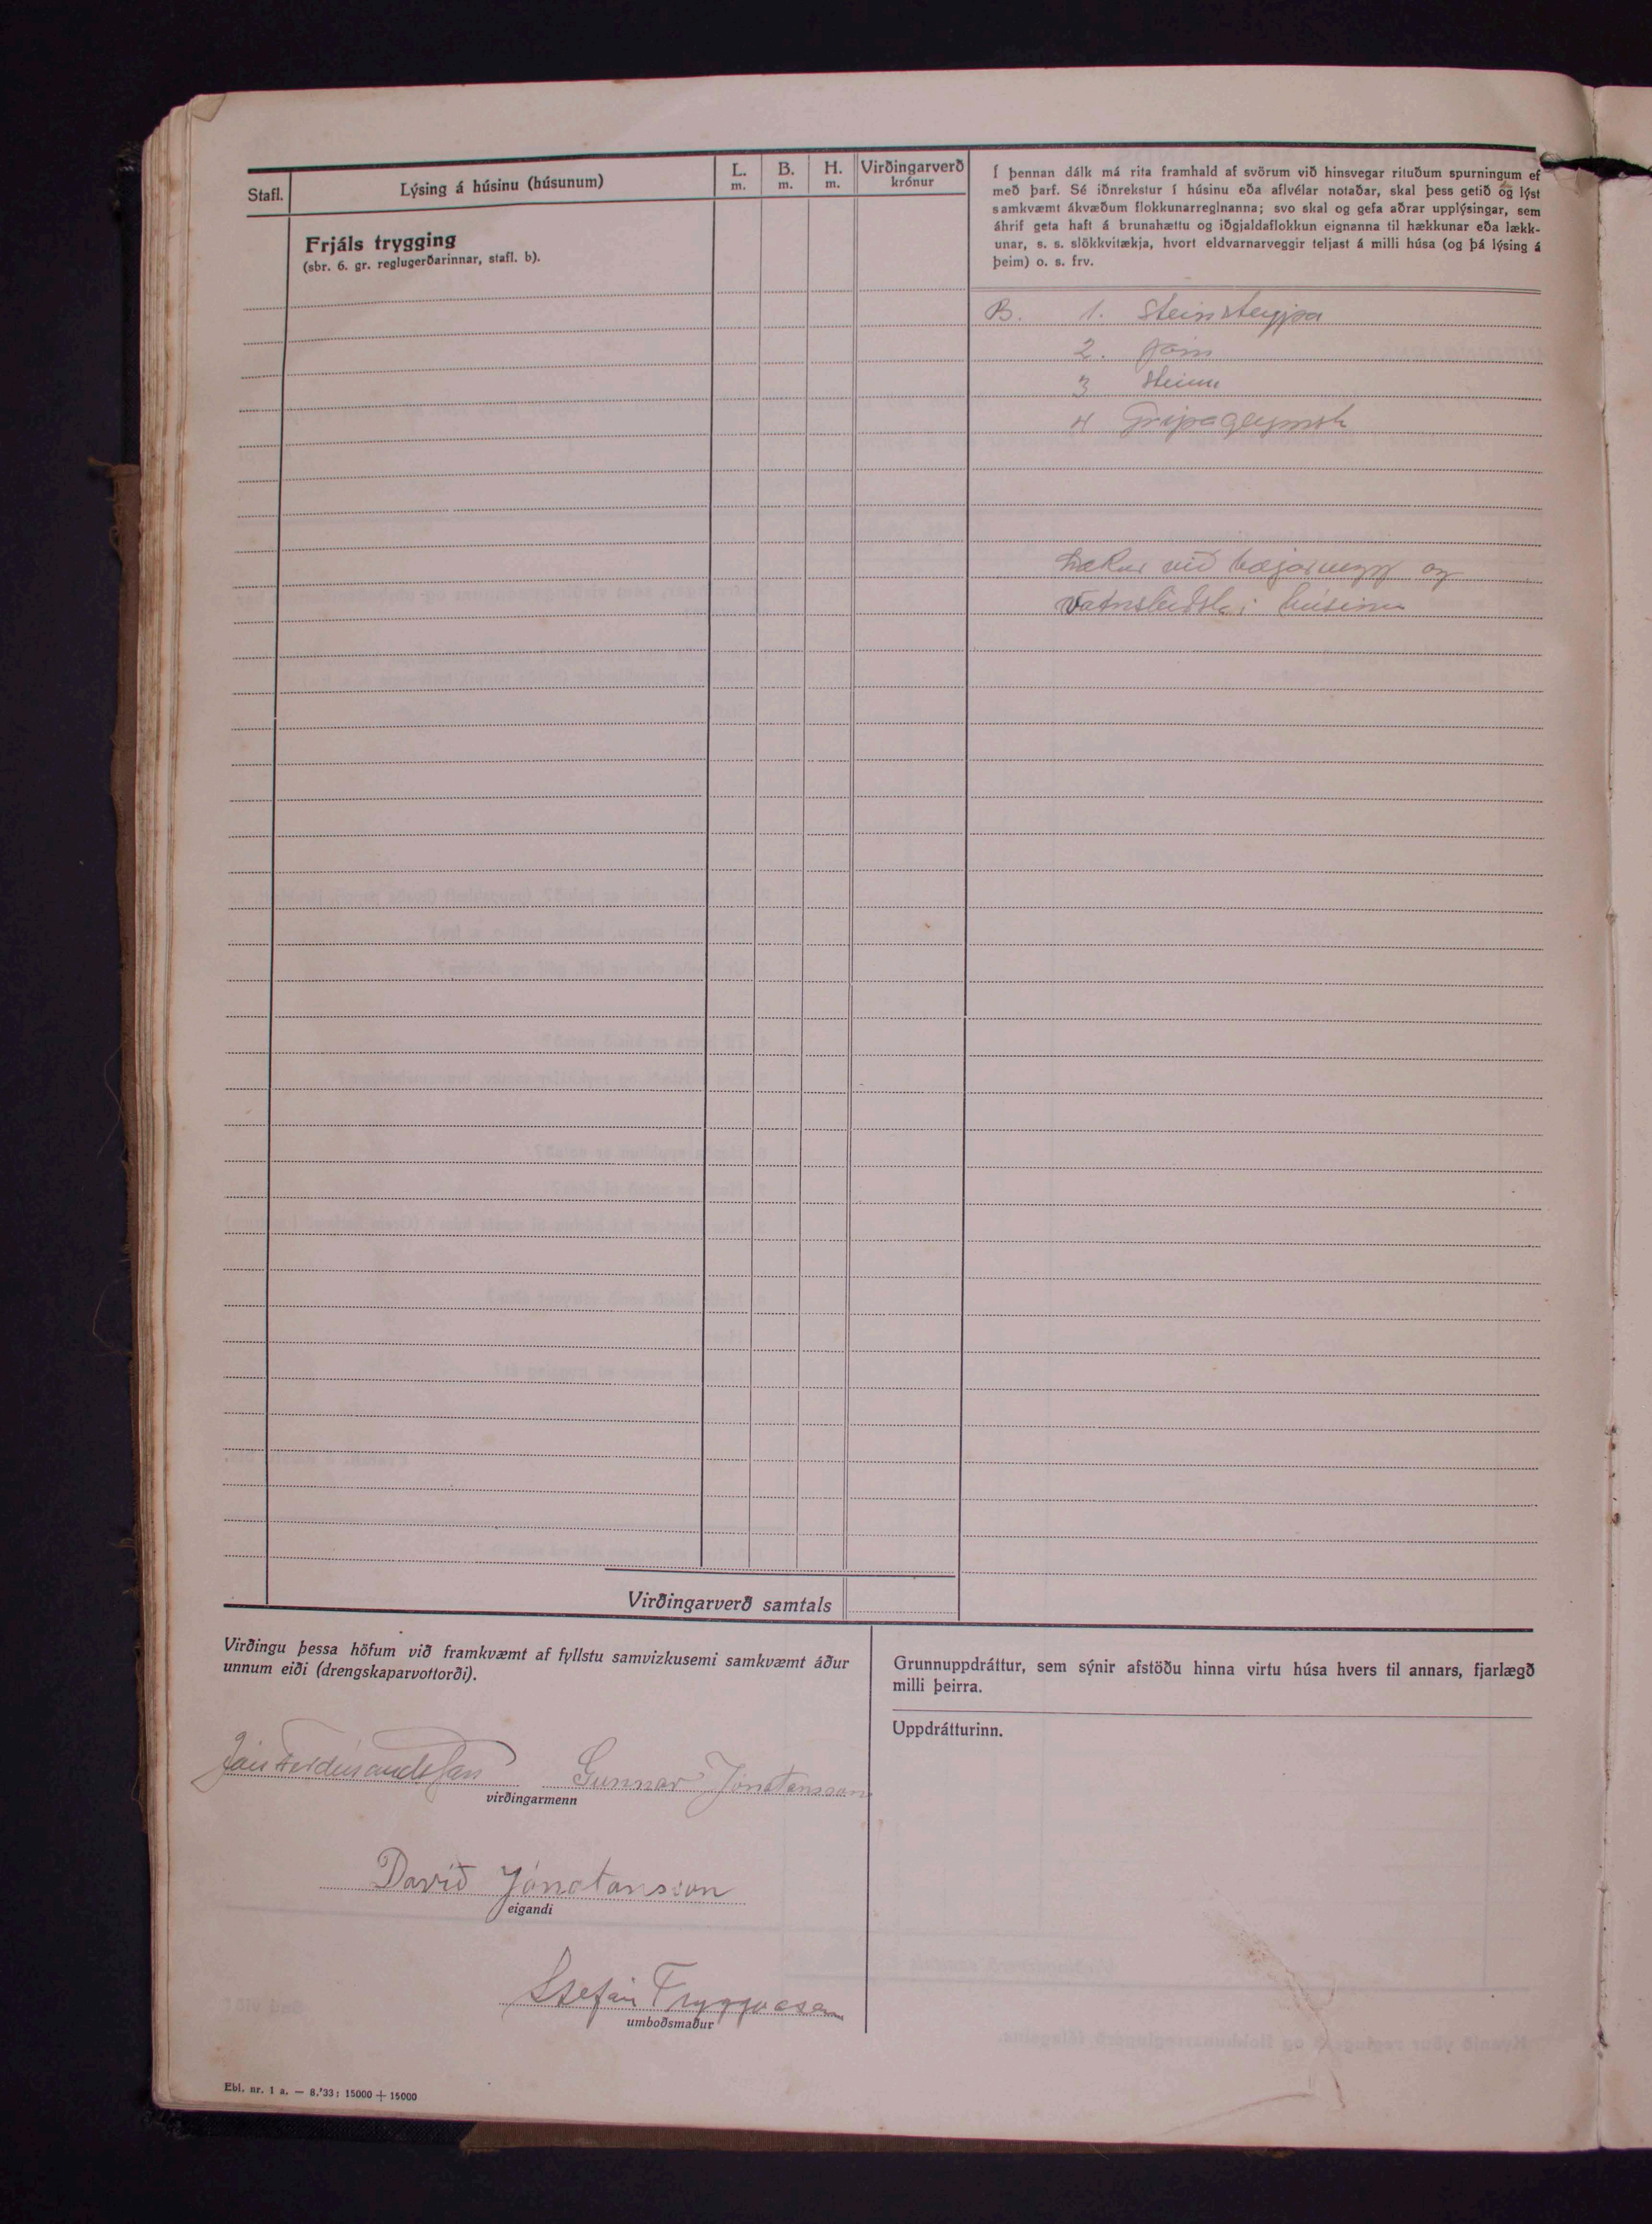 Stafl.
Lýsing á húsinu (húsunum)
L.
m.
B.
m.
H.
m.
Virðingarverð
krónur
Í þennan dálk má rita framhald af svörum við hinsvegar rituðum spurningum ef
með þarf. Sé iðnrekstur í húsinu eða aflvélar notaðar, skal þess getið og lýst
samkvæmt ákvæðum flokkunarreglnanna; svo skal og gefa aðrar upplýsingar, sem
áhrif geta haft á brunahættu og iðgjaldaflokkun eignanna til hækkunar eða lækk-
unar, s. s. slökkvitækja, hvort eldvarnarveggir teljast á milli húsa (og þá lýsing á
þeim) o. s. frv.
Frjáls trygging
(sbr. 6. gr. reglugerðarinnar, stafl. b).
B. 1. Steinsteypa
2. Járn
3 Steinn
4 Gripageymsla
Lækur við bæjarvegg og
Vatnsleiðsla í húsinu
Virðingarverð samtals
Virðingu þessa höfum við framkvæmt af fyllstu samvizkusemi samkvæmt áður
unnum eiði (drengskaparvottorði).
Jón Ferdinandsson Gunnar Jónatansson
virðingarmenn
Davíð Jónatansson
eigandi
Stefán Tryggvason
umboðsmaður
Grunnuppdráttur, sem sýnir afstöðu hinna virtu húsa hvers til annars, fjarlægð
milli þeirra.
Uppdrátturinn.
Ebl. nr. 1 a. — 8.'33; 15000 + 15000